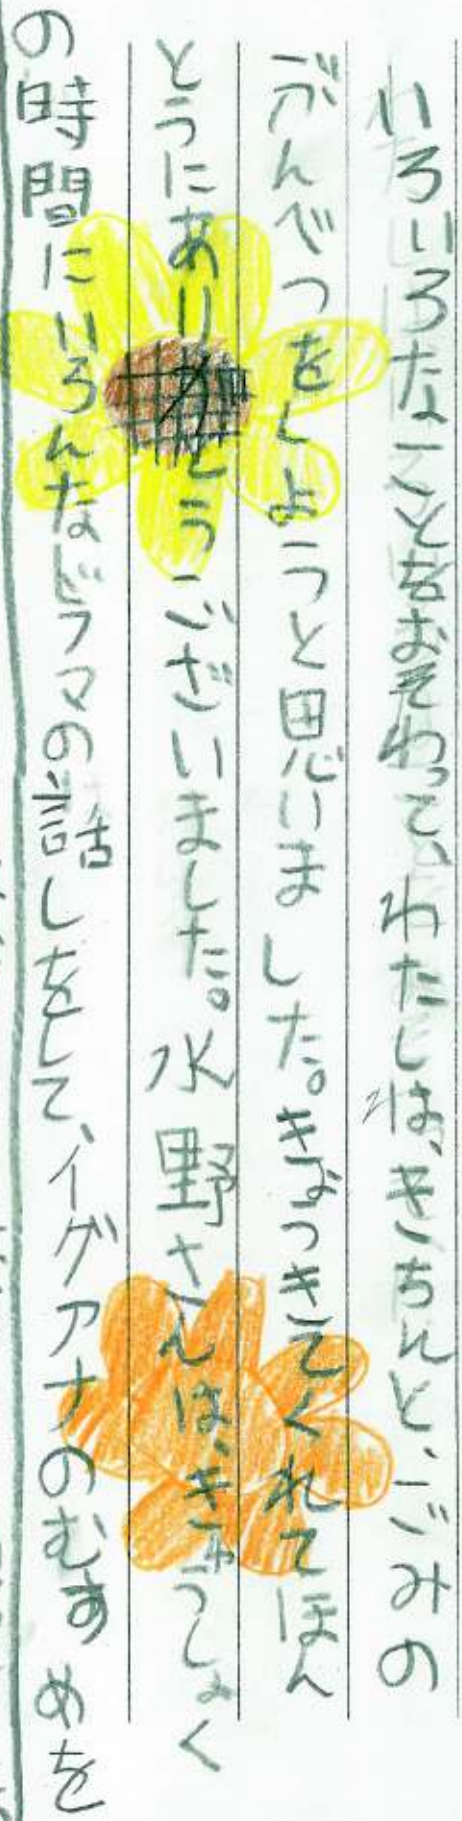 いろいろなことをおそわって、わたしは、きちんと、ごみの
ぶんべつをしようと思いました。きょうきてくれてほん
とうにありがとうございました。水野さんは、きゅうしょく
の時間にいろんなドラマの話しをして、イグアナのむすめを